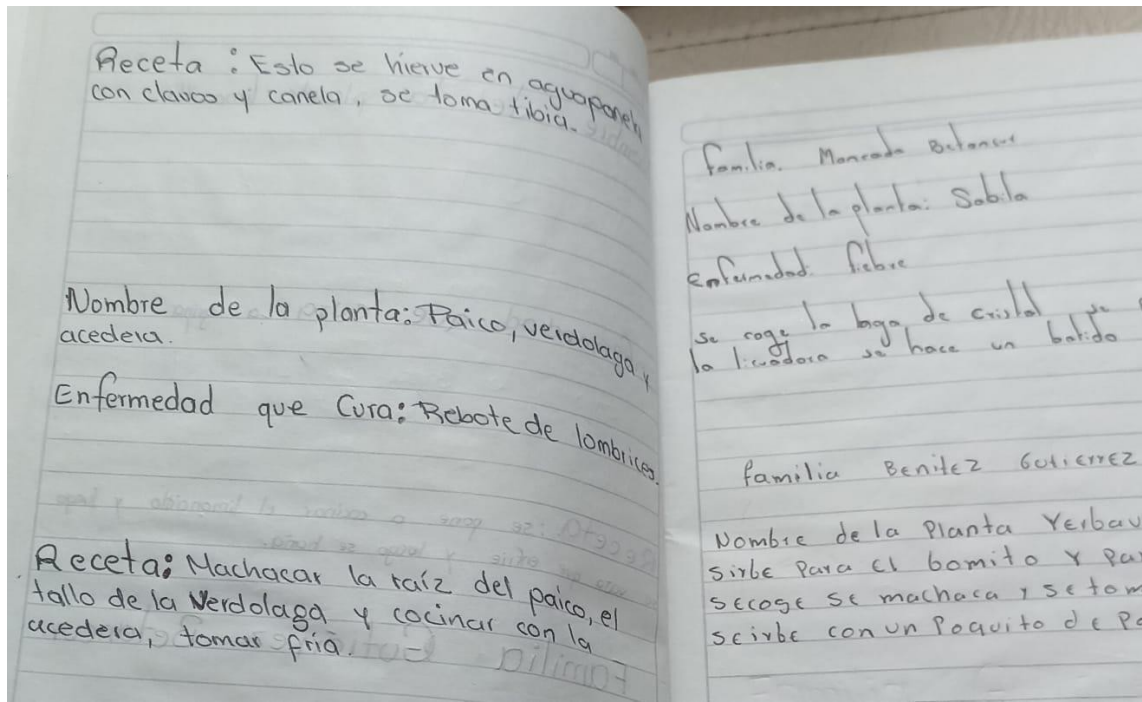 Receta : Esto se hierve en aguapanela
con clavos y canela, se toma tibia.
Nombre de la planta: Paico, verdolaga y
acedera.
Enfermedad que Cura: Rebote de lombrices.
Receta: Machacar la raíz del paico, el
tallo de la Verdolaga y cocinar con la
acedera, tomar fria.
familia. Moncada Betancur
Nombre de la planta: Sabila
enfermedad. fiebre
se coge la baga de cristal
la licuadora se hace un batido
familia Benitez Gutierrez
Nombre de la Planta Yerbau
Sirbe Para el bomito y Pa
secoge se machaca y se tom
seirbe con un Poquito de Pa